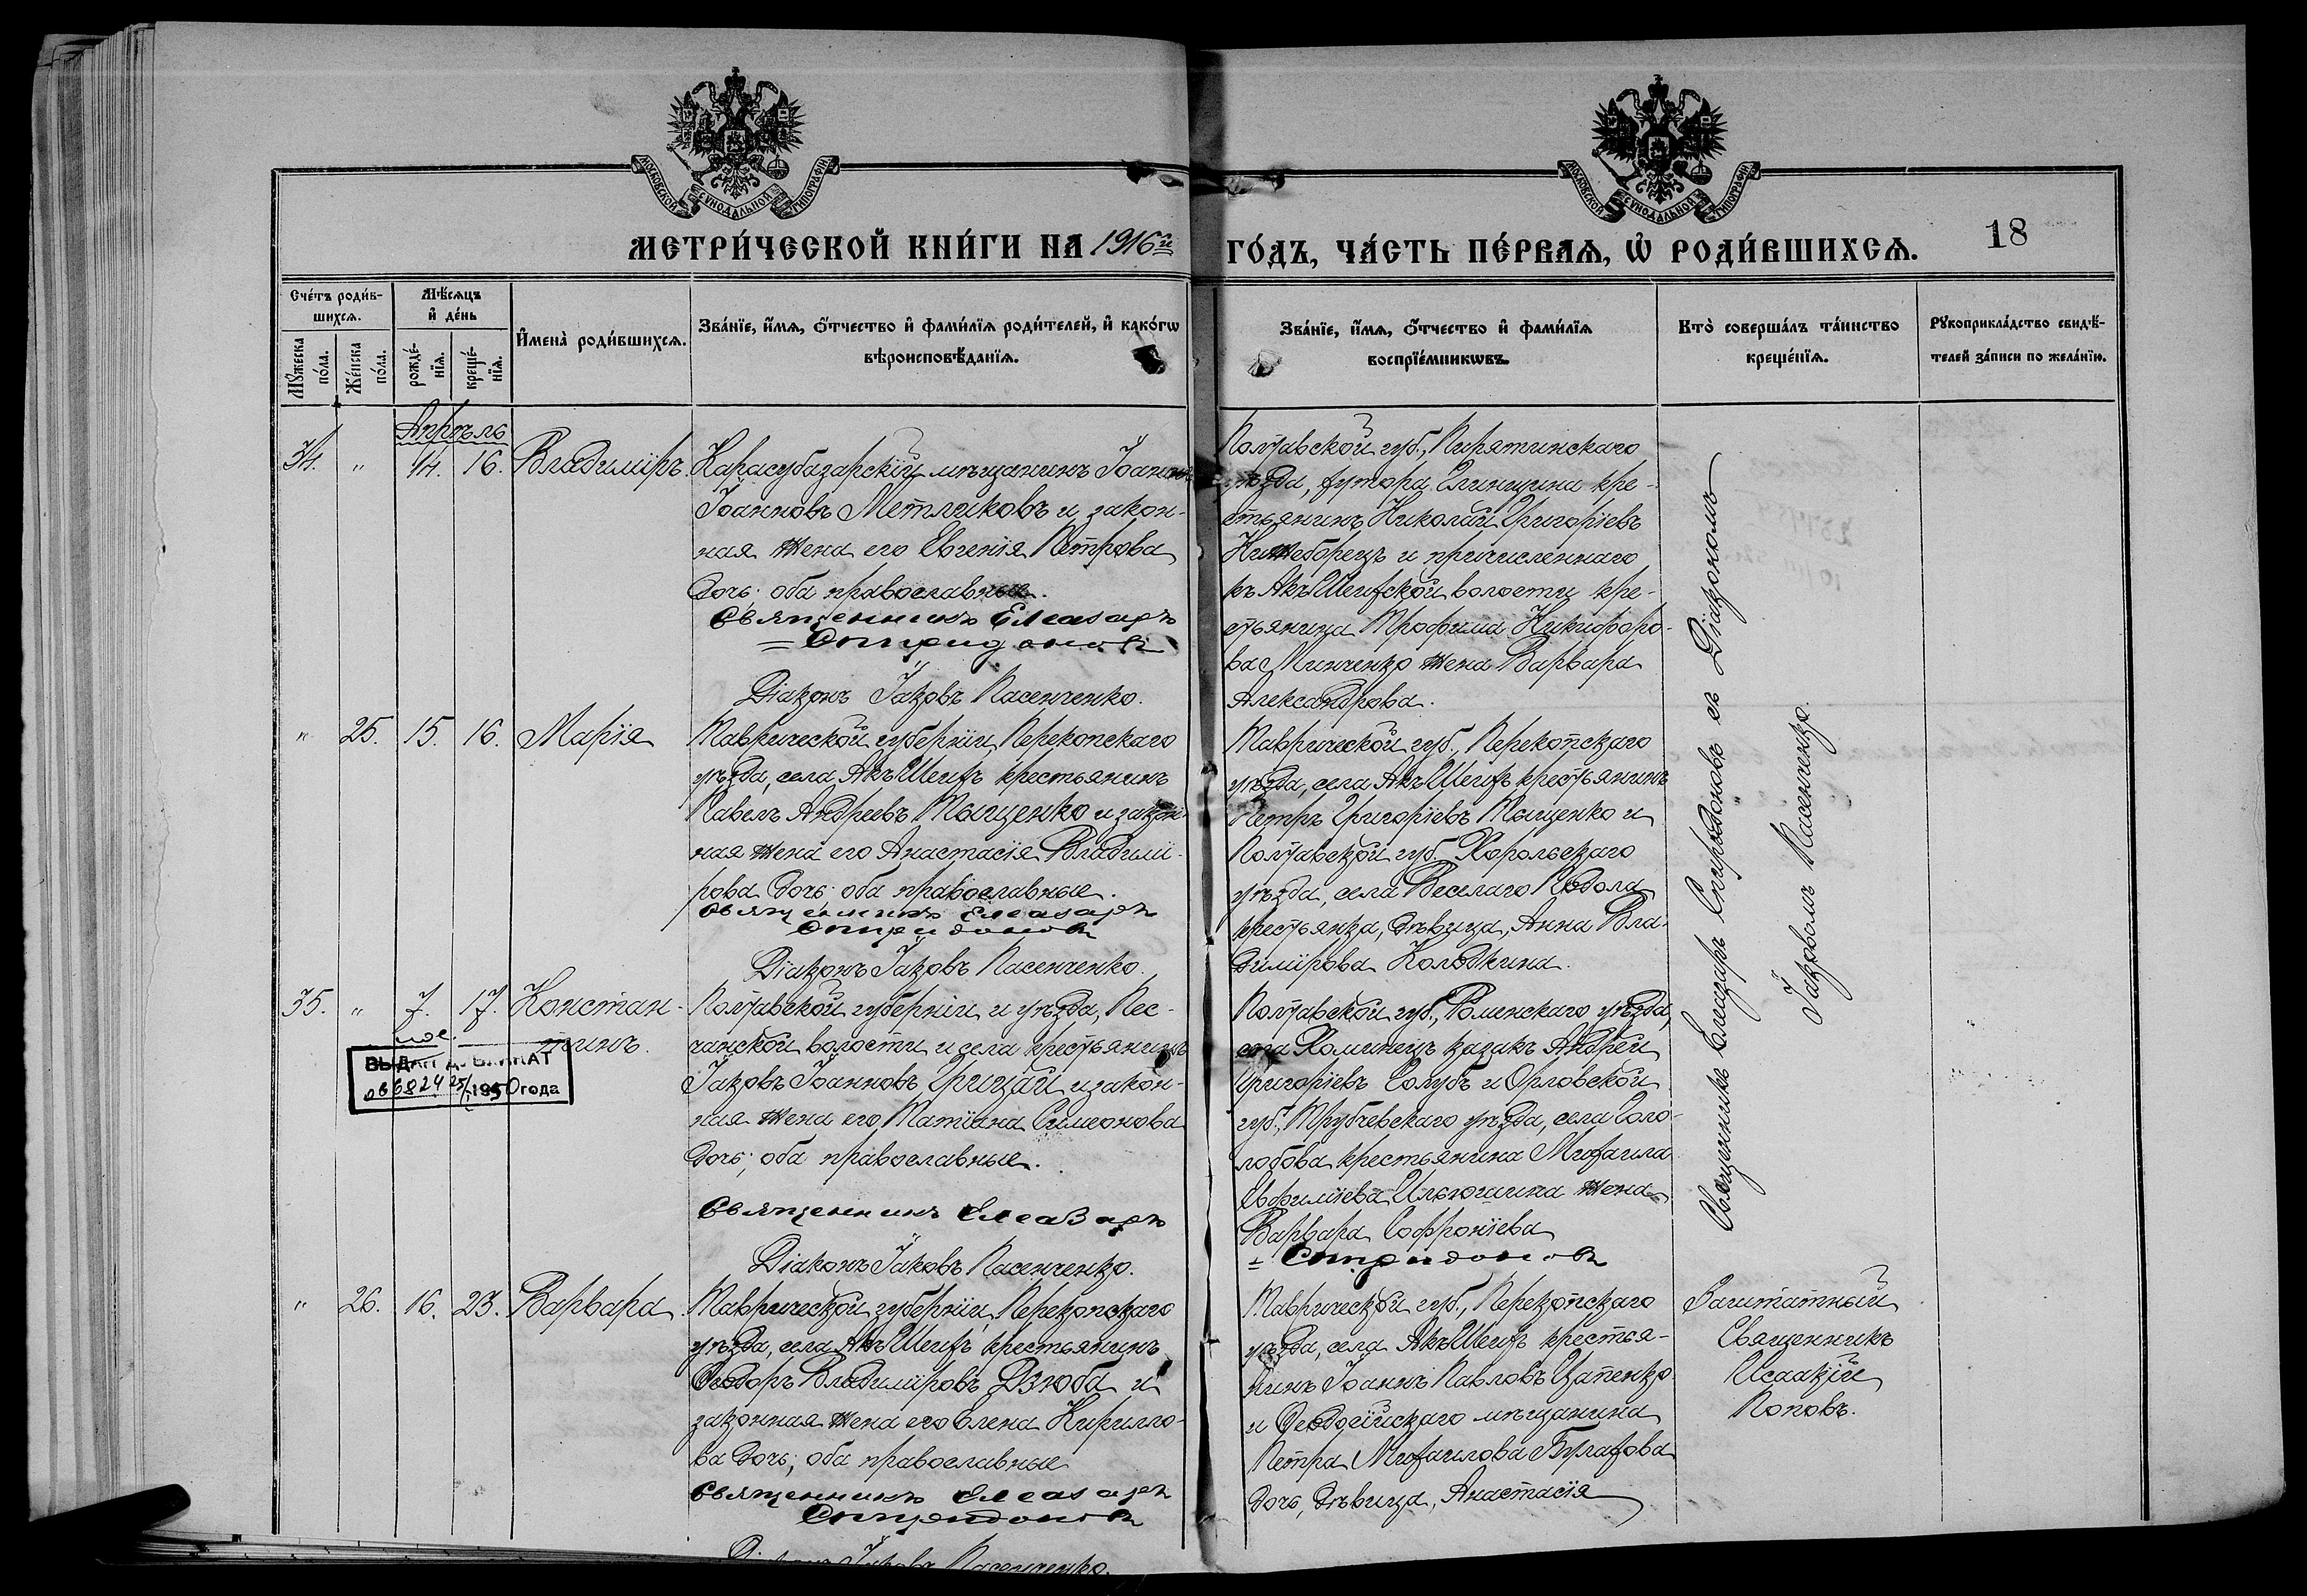 МОСКОВСКОЙ СѴНОДАЛЬНОЙ ТИПОГРАФІИ
МОСКОВСКОЙ СѴНОДАЛЬНОЙ ТИПОГРАФІИ
МЕТРИ́ЧЕСКОЙ КНИ́ГИ НА 1916й ГО́ДЪ, ЧА́СТЬ ПЕ́РВАѦ, Ѡ҆ РОДИ́ВШИХСѦ.
18
Сче́тъ роди́в-
шихсѧ.
Мꙋ́жеска
по́ла.
Же́нска
по́ла.
Мѣ́сѧцъ
и҆ де́нь
рожде́-
нїѧ.
креще́-
нїѧ.
И҆мена̀ роди́вшихсѧ.
Зва́нїе, и҆́мѧ, ѻ҆́тчество и҆ фами́лїѧ роди́телей, и҆ како́гѡ
вѣроисповѣ́данїѧ.
Зва́нїе, и҆́мѧ, ѻ҆́тчество и҆ фами́лїѧ
воспрїе́мникѡвъ.
Кто̀ соверша́лъ та́инство
креще́нїѧ.
Рꙋкоприкла́дство свидѣ́-
телей за́писи по жела́нїю.
Апрѣль
34. " 14. 16. Владиміръ.
Карасубазарскій мѣщанинъ Іоаннъ
Іоанновъ Метликовъ и закон-
ная жена его Евгенія Петрова
дочь; оба православные.
Священникъ Елеазаръ
Спиридоновъ
Діаконъ Іаковъ Пасенченко.
Полтавской губ., Пирятинскаго
уѣзда, хутора Глинщина кре-
стьянинъ Николай Григоріевъ
Нижеборецъ и причисленнаго
къ Акъ Шеихской волости кре-
стьянина Трофима Никифоро-
ва Минченко жена Варвара
Александрова.
Священникъ Елеазаръ Спиридоновъ съ Діакономъ
Іаковомъ Пасенченко.
" 25. 15. 16. Марія
Таврической губерніи, Перекопскаго
уѣзда, села Акъ Шеихъ крестьянинъ
Павелъ Андреевъ Тыщенко и закон-
ная жена его Анастасія Владими-
рова дочь; оба православные.
Священникъ Елеазаръ
Спиридоновъ
Діаконъ Іаковъ Пасенченко.
Таврической губ., Перекопскаго
уѣзда, села Акъ Шеихъ крестьянинъ
Петръ Григоріевъ Тыщенко и
Полтавской губ. Хорольскаго
уѣзда, села Веселаго Подола
крестьянка, дѣвица, Анна Вла-
димірова Колодкина.
35. " 7. 17. Констан-
тинъ.
ВЫДАН ДУБЛИКАТ
1950 года
Полтавской губерніи и уѣзда, Пес-
чанской волости и села крестьянинъ
Іаковъ Іоанновъ Грицай и закон-
ная жена его Татіана Симеонова
дочь; оба православные.
Священникъ Елеазаръ
Діаконъ Іаковъ Пасенченко.
Полтавской губ., Роменскаго уѣзда,
села Хоминецъ казакъ Андрей
Григоріевъ Голубъ и Орловской
губ., Трубчевскаго уѣзда, села Соло-
лобова крестьянина Михаила
Евфиміева Ильюшина жена
Варвара Софроніева
Спиридоновъ
" 26. 16. 23. Варвара.
Таврической губерніи, Перекопскаго
уѣзда, села Акъ Шеихъ крестьянинъ
Ѳеодоръ Владиміровъ Дзюба и
законная жена его Елена Кирилло-
ва дочь; оба православные
Священникъ Елеазаръ
Спиридоновъ
Діаконъ Іаковъ Пасенченко.
Таврической губ., Перекопскаго
уѣзда, села Акъ Шеихъ крестья-
нинъ Іоаннъ Павловъ Цапенко
и Ѳеодосійскаго мѣщанина
Петра Михаилова Булахова
дочь, дѣвица, Анастасія
Заштатный
Священникъ
Исаакій
Поповъ.